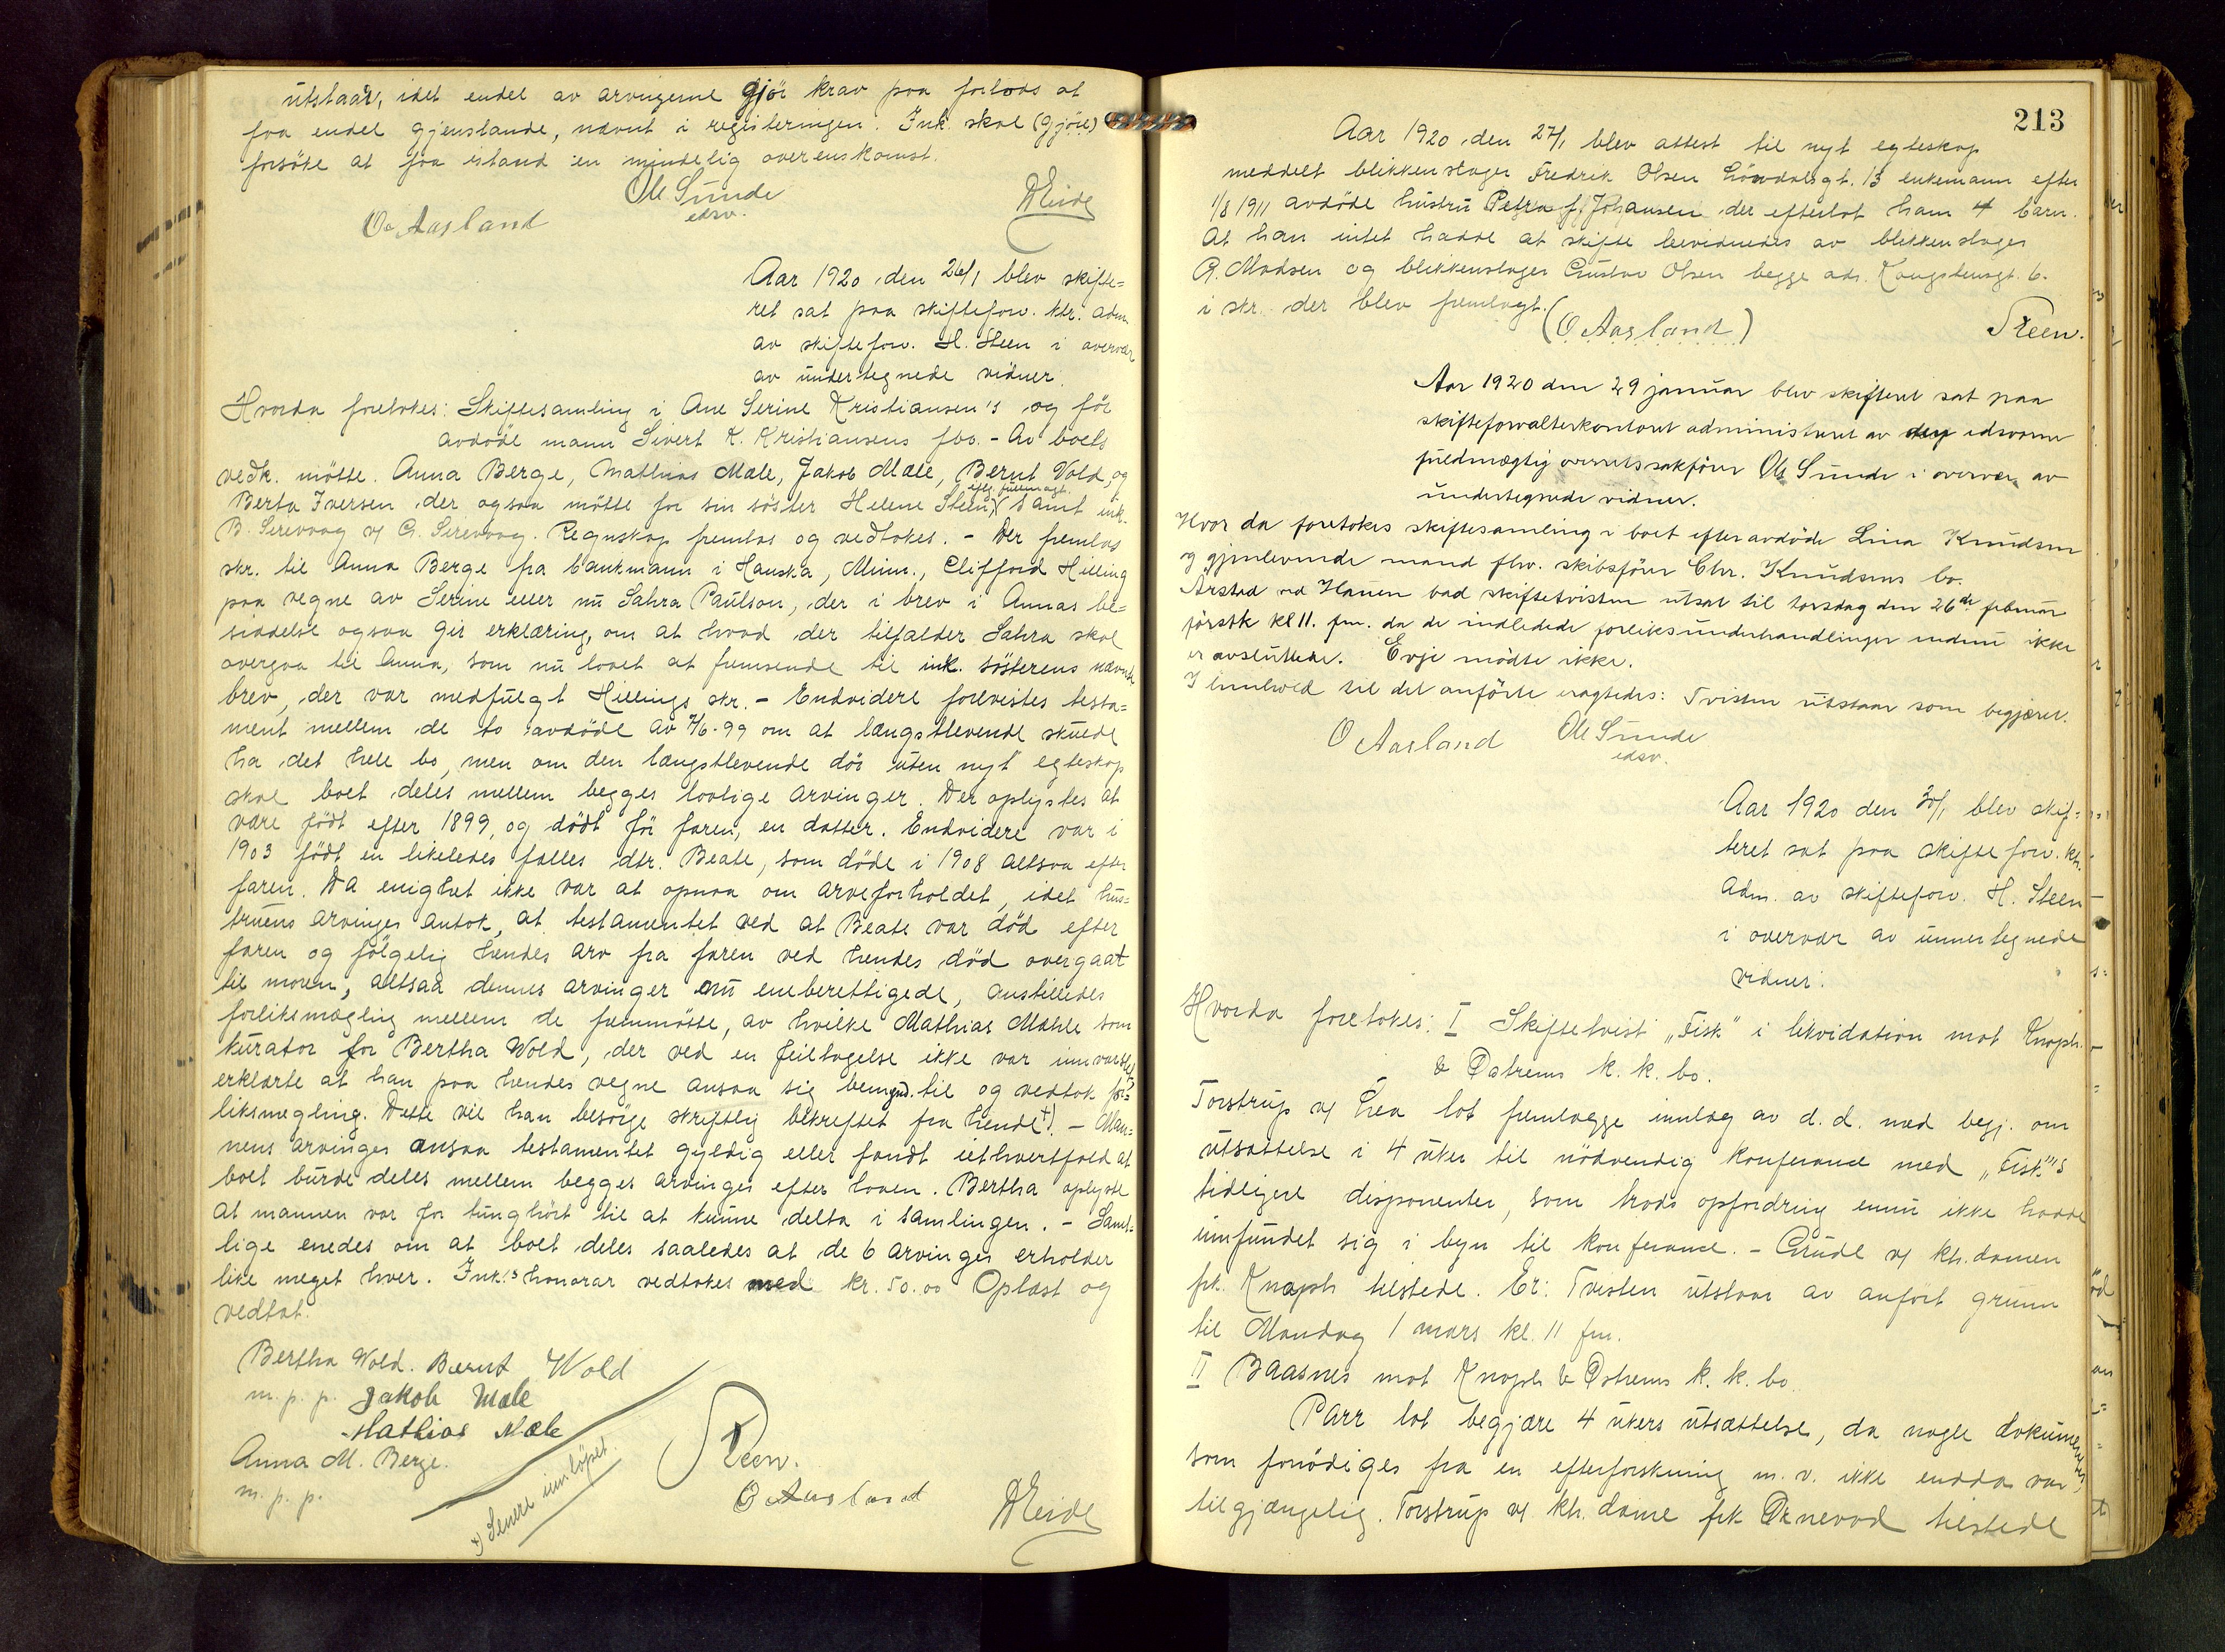 utstaar, idet endel av arvingerne gjör krav paa forlods at
faa endel gjenstande, nævnt i registeringen. Ink. skal (gjöre)
forsöke at faa istand en mindelig overenskomst.
Ole Sunde
edsv.
O. Aasland
Aar 1920 den 26/1 blev skifte=
ret sat paa skifteforv. ktr. adm.
av skifteforv. H. Steen i overvær
av undertegnede vidner.
Hvorda foretokes: Skiftesamling i Ane Serine Kristiansen's og för
avdöde mann Sivert K. Kristiansens fbo. - Av boets
vedk. mötte. Anna Berge, Mathias Mæle, Jakob Mæle, Bernt Wold, og
Berta Iversen der ogsaa mötte for sin söster Helene Steen, samt ink.
eflg. fuldmagt.
B. Sirevaag v/ G. Sirevaag. Regnskap fremlas og vedtokes. - Der fremlas
skr. til Anna Berge fra bankmann i Hanska, Minn., Clifford Helling
paa vegne av Serine eller nu Sahra Paulson, der i brev i Annas be=
siddelse ogsaa gir erklæring, om at hvad der tilfalder Sahra skal
overgaa til Anna, som nu lovet at fremsende til ink. sösterens nævnte
brev, der var medfulgt Hellings skr. - Endvidere forevistes testa=
ment mellem de to avdöde av 7/6-99 om at længstlevende skulde
ha det hele bo, men om den længstlevende dör uten nyt egteskap
skal boet deles mellem begges lovlige arvinger. Der oplystes at
være födt efter 1899, og dödt för faren, en datter. Endvidere var i
1903 födt en likeledes fælles dtr. Beate, som döde i 1908 altsaa efter
faren. Da enighet ikke var at opnaa om arveforholdet, idet hus=
truens arvinger antok, at testamentet ved at Beate var död efter
faren og fölgelig hendes arv fra faren ved hendes död overgaat
til moren, altsaa dennes arvinger nu eneberettigede, anstilledes
forliksmægling mellem de fremmötte, av hvilke Mathias Mæhle som
kurator for Bertha Wold, der ved en feiltagelse ikke var innvarslet,
erklærte at han paa hendes vegne ansaa sig bemynd. til og vedtok for=
liksmegling. Dette vil han besörge skriftlig bekreftet fra hende +). - Man=
nens arvinger ansaa testamentet gyldig eller fandt iethvertfald at
boet burde deles mellem begges arvinger efter loven. Bertha oplyste
at mannen var for tunghört til at kunne delta i samlingen. - Samt=
lige enedes om at boet deles saaledes at de 6 arvinger erholder
like meget hver. Ink.'s honorar vedtokes med kr. 50.00 Oplæst og
vedtat.
Bertha Wold. Bernt Wold
m. p. p. Jakob Mæle
Mathias Mæle
Anna M. Berge.
m. p. p.
+) Senere innlöpet.
Steen.
O Aasland
213
Aar 1920 den 27/1 blev attest til nyt egteskap
meddelt blikkenslager Fredrik Olsen Lövdalsgt. 13 enkemann efter
1/8 1911 avdöde hustru Petra f. Johansen der efterlot ham 4 barn.
At han intet hadde at skifte bevidnedes av blikkenslager
R. Madsen og blikkenslager Gustav Olsen begge adr. Kongstensgt. 6.
i skr. der blev fremlagt.
(O Aasland)
Steen.
Aar 1920 den 29 januar blev skifteret sat paa
skifteforvalterkontoret administreret av den edsvorne
fuldmægtig overretssakförer Ole Sunde i overvær av
undertegnede vidner.
Hvor da foretokes skiftesamling i boet efter avdöde Lina Knudsen
og gjenlevende mand fhv. skibsförer Chr. Knudsens bo.
Årstad ved Hauen bad skiftetvisten utsat til torsdag den 26de februar
förstk kl 11. fm. da de indledede forliksunderhandlinger endnu ikke
er avsluttede. Evje mödte ikke.
I henhold til det anförte eragtedes: Tvisten utstaar som begjæret.
O Aasland
Ole Sunde
edsv.
Aar 1920 den 30/1 blev skif=
teret sat paa skifteforv. ktr.
adm. av skifteforv. H. Steen
i overvær av unnertegnede
vidner:
Hvorda foretokes: I Skiftetvist "Fisk" i likvidation mot Knoph
& Östrems k. k. bo.
Torstrup v/ Lea lot fremlægge innlæg av d. d. med begj. om
utsættelse i 4 uker til nödvendig konferance med "Fisk"'s
tidligere disponenter, som trods opfordring ennu ikke hadde
innfundet sig i byen til konferance. - Grude v/ ktr. damen
frk. Knoph tilstede. Er: Tvisten utstaar av anfört grunn
til Mandag 1 mars kl. 11 fm.
II Baasnes mot Knoph & Östrems k. k. bo.
Parr lot begjære 4 ukers utsættelse, da nogle dokumenter,
som fornödiges fra en efterforskning m. v. ikke endda var
tilgjængelig. Torstrup v/ ktr. dame frk Örnevad tilstede